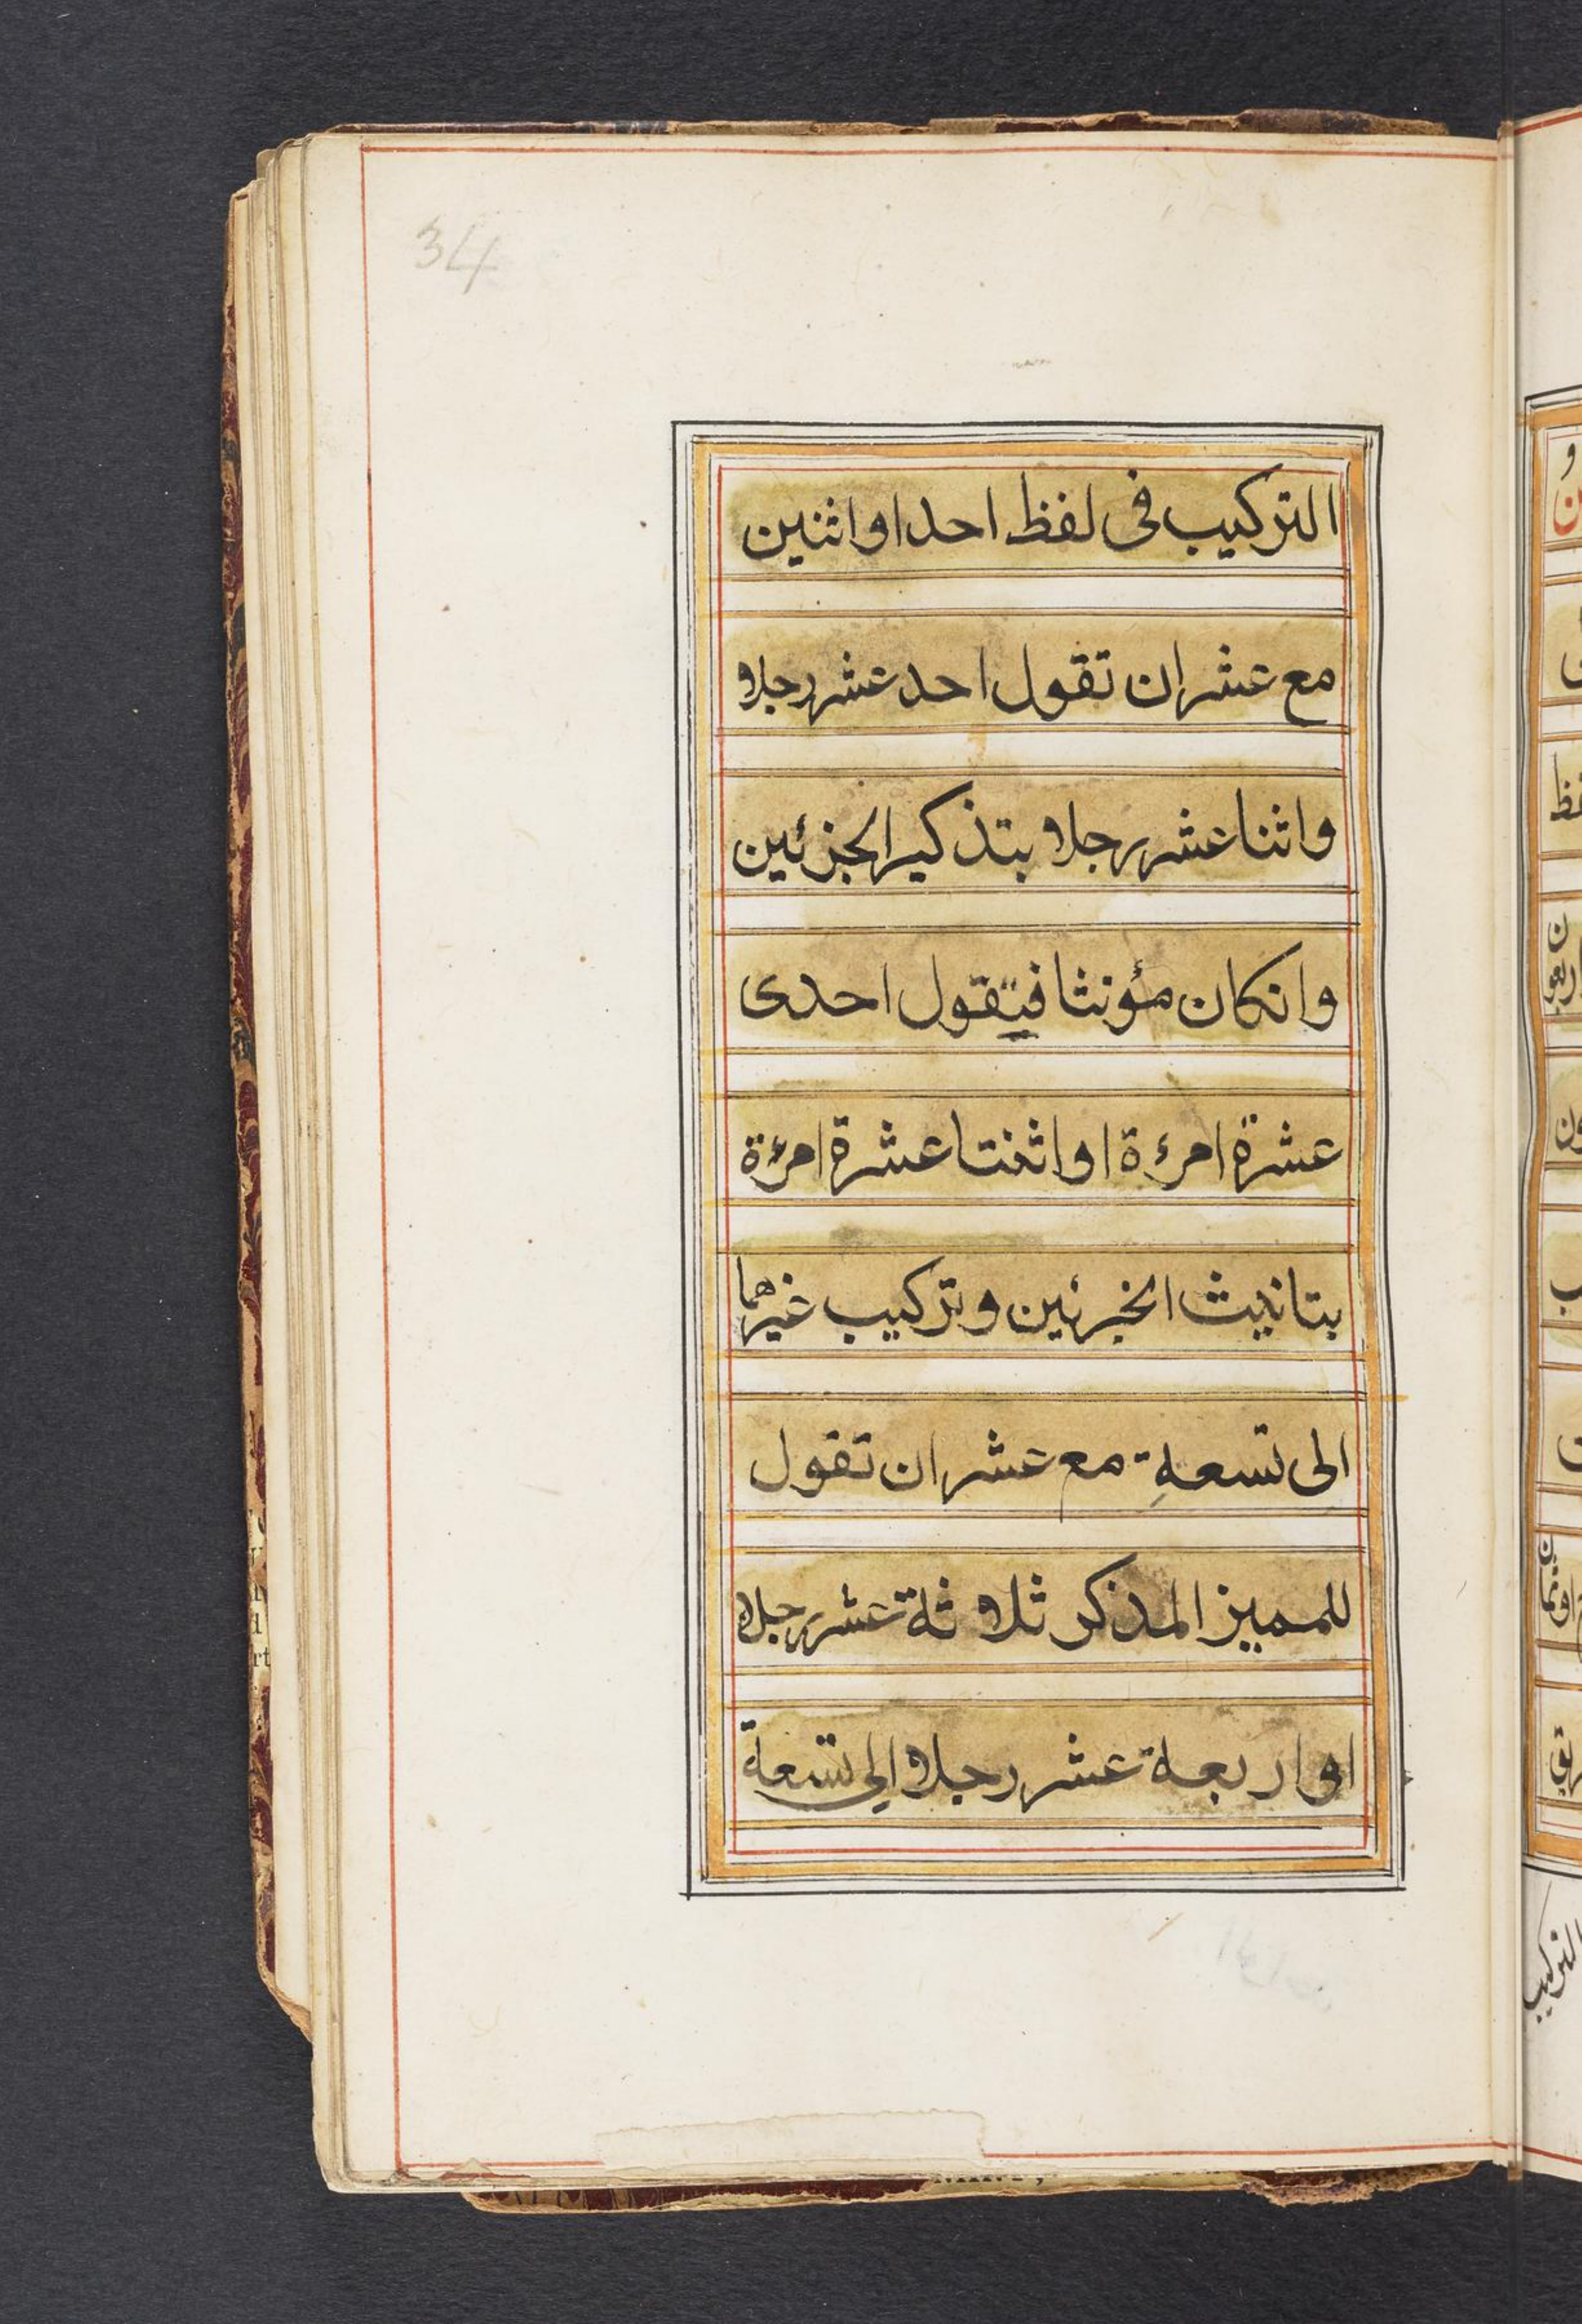 34
التركيب فى لفظ احد او اثنين
مع عشر ان تقول احد عشر رجلا
واثنا عشر رجلا بتذكير الجزئين
وانكان مؤنثا فيتقول احدى
عشرة امرءة او اثنتا عشرة امرءة
بتانيث الخبرئين وتركيب غيرهما
الى تسعة مع عشر ان تقول
للمميز المذكر ثلاثة عشر رجلا
او اربعة عشر رجلا الى تسعة
التركيب